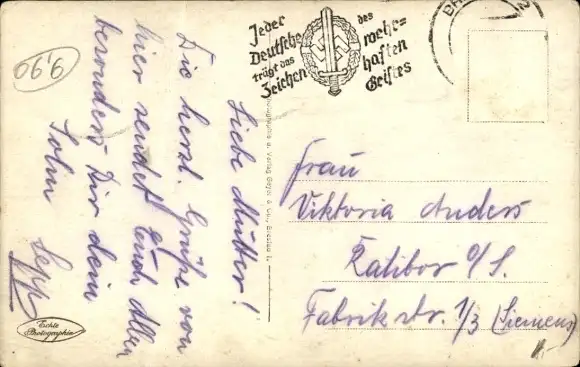 Jeder
Deutsche
trägt das
Zeichen
des
wehr=
haften
Geistes
9,90
Liebe Mutter!
Die herzl. Grüße von
hier sendet Euch allen
besonders Dir dein
Sohn Sepp
Frau
Viktoria Anders
Ratibor O/S.
Fabrikstr. 1/3 (Siemens)
Echte
Photographie